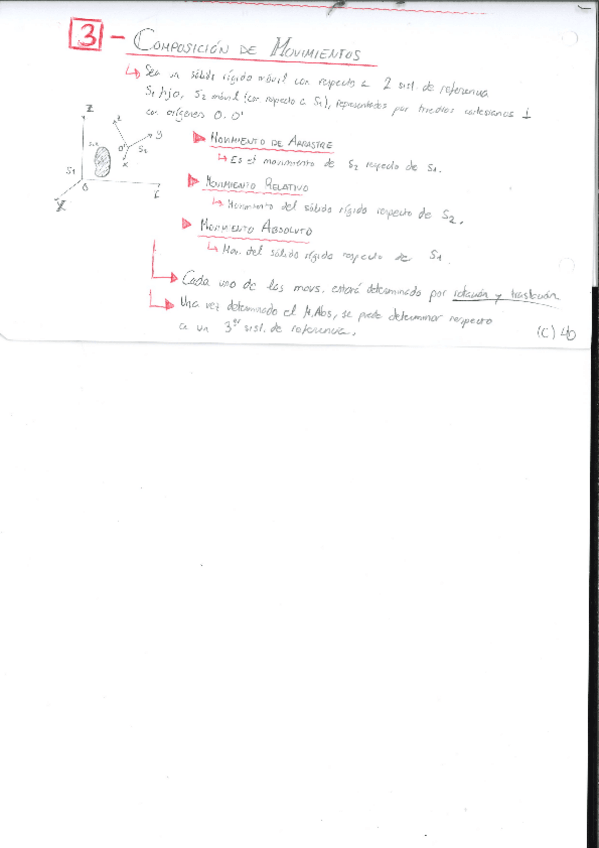 3 - COMPOSICIÓN DE MOVIMIENTOS
Sea un sólido rígido móvil con respecto a 2 sist. de referencia
S1 fijo, S2 móvil (con respecto a S1), representados por triedros cartesianos ⊥
con orígenes O, O'
Z
z
y
O'
S2
x
S1
O
MOVIMIENTO DE ARRASTRE
Es el movimiento de S2 respecto de S1.
MOVIMIENTO RELATIVO
Movimiento del sólido rígido respecto de S2.
MOVIMIENTO ABSOLUTO
Mov. del sólido rígido respecto de S1
Cada uno de los movs. estará determinado por rotación y traslación
Una vez determinado el M.Abs, se puede determinar respecto
a un 3er sist. de referencia.
(C) 40